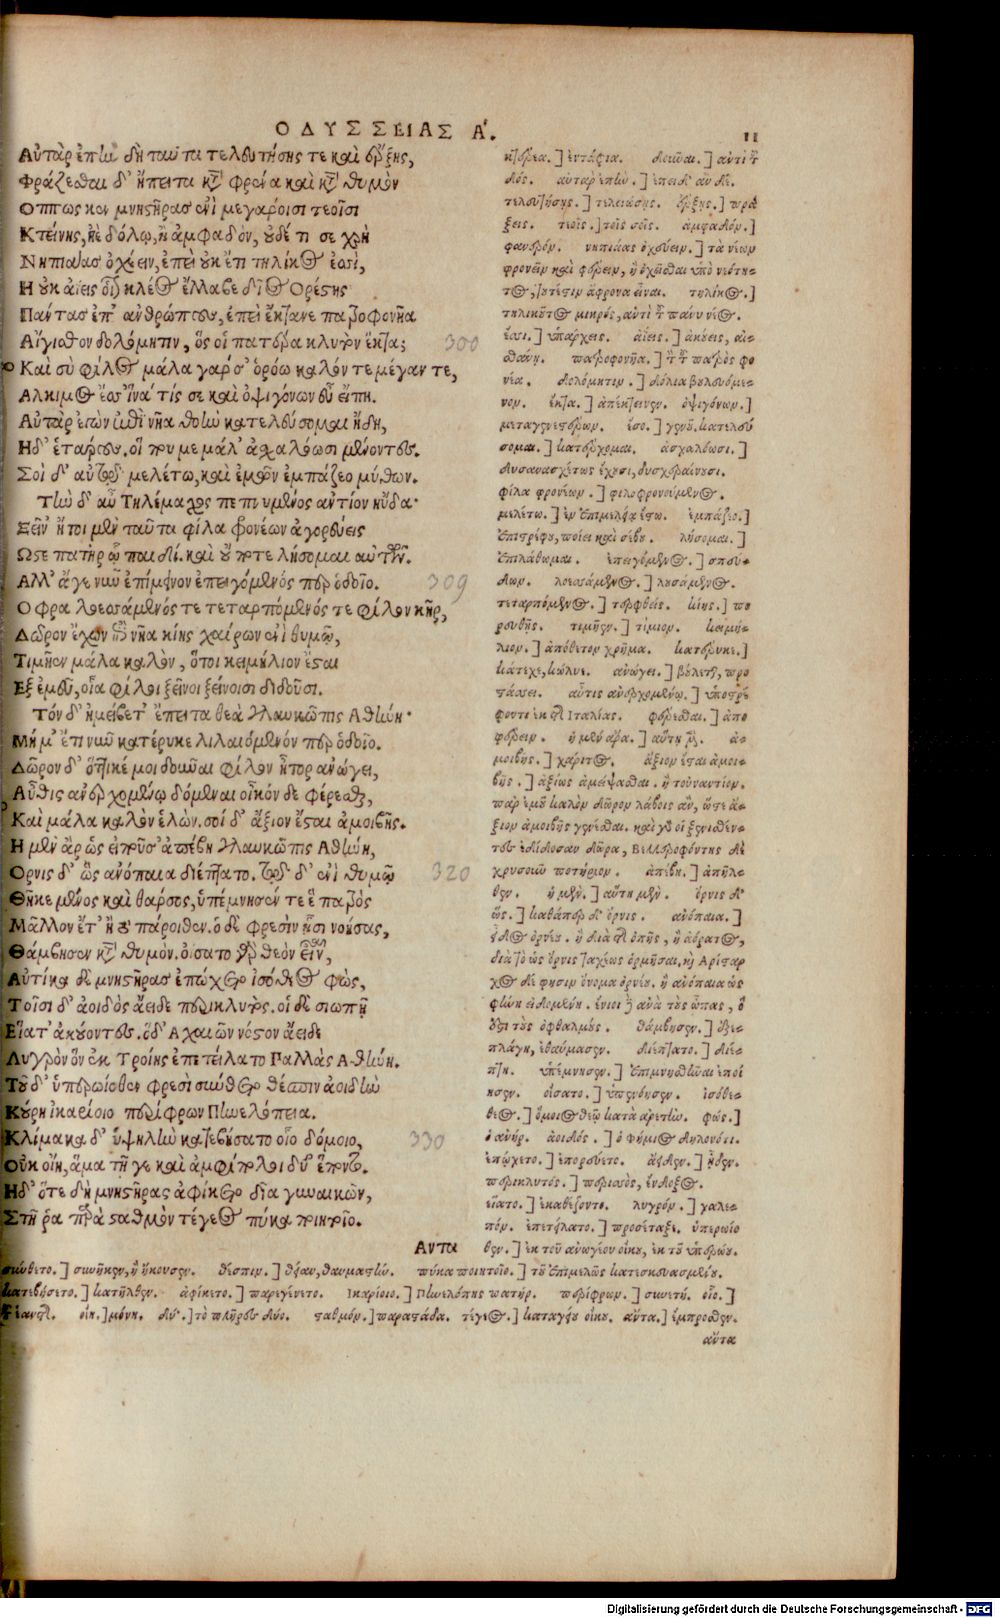 ΟΔΥΣΣΕΙΑΣ Α.
11
Αὐτὰρ ἐπὴν δὴ ταῦτα τελευτήσης τε καὶ ἔρξης,
Φράζεσθαι δ' ἤπειτα κατὰ φρένα καὶ κατὰ θυμὸν
Οππως κεν μνηστῆρας ἐνὶ μεγάροισι τεοῖσι
Κτείνης, ἠὲ δόλῳ, ἢ ἀμφαδὸν, οὐδέ τι σε χρὴ
Νηπιάας ὀχέειν, ἐπεὶ οὐκ ἔτι τηλίκος ἐσσὶ,
Η οὐκ ἀίεις οἷον κλέος ἔλλαβε δῖος Ορέστης
Πάντας ἐπ' ἀνθρώπους, ἐπεὶ ἔκτανε πατροφονῆα
Αἴγισθον δολόμητιν, ὅς οἱ πατέρα κλυτὸν ἔκτα;
300
Καὶ σὺ φίλος μάλα γάρ σ' ὁρόω καλόν τε μέγαν τε,
Αλκιμος ἔσσ' ἵνα τίς σε καὶ ὀψιγόνων εὖ εἴπη.
Αὐτὰρ ἐγὼν ἐπὶ νῆα θοὴν κατελεύσομαι ἤδη,
Ηδ' ἑτάρους, οἵ που με μάλ' ἀσχαλόωσι μένοντες.
Σοὶ δ' αὐτῷ μελέτω, καὶ ἐμῶν ἐμπάζεο μύθων.
Τὴν δ' αὖ Τηλέμαχος πεπνυμένος ἀντίον ηὔδα·
Ξεῖν' ἤτοι μὲν ταῦτα φίλα φρονέων ἀγορεύεις
Ωστε πατὴρ ᾧ παιδί. καὶ οὔ ποτε λήσομαι αὐτῶν.
Αλλ' ἄγε νῦν ἐπίμεινον ἐπειγόμενός περ ὁδοῖο.
309
Οφρα λοεσσάμενός τε τεταρπόμενός τε φίλον κῆρ,
Δῶρον ἔχων ἐπὶ νῆα κίης χαίρων ἐνὶ θυμῷ,
Τιμῆεν μάλα καλὸν, ὅτοι κειμήλιον ἔσται
Εξ ἐμεῦ, οἷα φίλοι ξεῖνοι ξείνοισι διδοῦσι.
Τόν δ' ἠμείβετ' ἔπειτα θεὰ γλαυκῶπις Αθήνη·
Μή μ' ἔτι νῦν κατέρυκε λιλαιόμενόν περ ὁδοῖο.
Δῶρον δ' ὅττικέ μοι δοῦναι φίλον ἦτορ ἀνώγει,
Αὖθις ἀνερχομένῳ δόμεναι οἶκόν δε φέρεσθαι,
Καὶ μάλα καλὸν ἑλών. σοὶ δ' ἄξιον ἔσται ἀμοιβῆς.
Η μὲν ἄρ ὣς εἰποῦσ' ἀπέβη γλαυκῶπις Αθήνη,
Ορνις δ' ὣς ἀνόπαια διέπτατο. τῷ δ' ἐνὶ θυμῷ
320
Θῆκε μένος καὶ θάρσος, ὑπέμνησέν τε ἑ πατρὸς
Μᾶλλον ἔτ' ἢ τὸ πάροιθεν. ὁ δὲ φρεσὶν ᾗσι νοήσας,
Θάμβησεν κατὰ θυμὸν. ὀΐσατο γὰρ θεὸν εἶναι,
Αὐτίκα δὲ μνηστῆρας ἐπῴχετο ἰσόθεος φὼς,
Τοῖσι δ' ἀοιδὸς ἄειδε περικλυτὸς. οἱ δὲ σιωπῇ
Εἵατ' ἀκούοντες. ὁ δ' Αχαιῶν νόστον ἄειδε
Λυγρὸν ὃν ἐκ Τροίης ἐπετείλατο Παλλὰς Αθήνη.
Τοῦ δ' ὑπερωϊόθεν φρεσὶ σύνθετο θέσπιν ἀοιδὴν
Κούρη ἰκαρίοιο περίφρων Πηνελόπεια.
Κλίμακα δ' ὑψηλὴν κατεβήσατο οἷο δόμοιο,
330
Οὐκ οἴη, ἅμα τῇ γε καὶ ἀμφίπολοι δύ' ἕποντο.
Ηδ' ὅτε δὴ μνηστῆρας ἀφίκετο δῖα γυναικῶν,
Στῆ ῥα παρὰ σταθμὸν τέγεος πύκα ποιητοῖο.
Αντα
κτέρεα.] ἐντάφια. δοιῶαι.] ἀντὶ τοῦ
δός. αὐτὰρ ἐπὴν.] ἐπειδ' ἂν δὲ.
τελευτήσης.] τελειώσης. ἔρξης.] πρά
ξεις. τεοῖς.] τοῖς σοῖς. ἀμφαδόν.]
φανερόν. νηπιάας ὀχέειν.] τὰ νέων
φρονεῖν καὶ φέρειν, ἢ ὀχεῖσθαι ὑπὸ νεότη-
τος, τουτέστιν ἄφρονα εἶναι. τηλίκος.]
τηλικοῦτος μικρός, ἀντὶ τοῦ πάνυ νέος.
ἔσσι.] ὑπάρχεις. ἀΐεις.] ἀκούεις, αἰ-
σθάνῃ. πατροφονῆα.] τὸν τοῦ πατρὸς φο
νέα. δολόμητιν.] δόλια βουλευόμε-
νον. ἔκτα.] ἀπέκτεινεν. ὀψιγόνων.]
μεταγενεστέρων. ἔσο.] γενοῦ. κατελεύ
σομαι.] κατέρχομαι. ἀσχαλόωσι.]
δυσανασχέτως ἔχουσι, δυσχεραίνουσι.
φίλα φρονέων.] φιλοφρονούμενος.
μελέτω.] ἐν ἐπιμελείᾳ ἔστω. ἐμπάζεο.]
ἐπιστρέφου, ποίει καὶ σέβου. λήσομαι.]
ἐπιλάθωμαι. ἐπειγόμενος.] σπεύ-
δων. λοεσσάμενος.] λουσάμενος.
τεταρπόμενος.] τερφθεὶς. κίῃς.] πο
ρευθῇς. τιμῆεν.] τίμιον. κειμή-
λιον.] ἀπόθετον χρῆμα. κατέρυκε.]
κάτεχε, κώλυε. ἀνώγει.] βούλεται, προ
τάσσει. αὖτις ἀνερχομένῳ.] ὑποστρέ
φοντι ἐκ τῆς Ιταλίας. φέρεσθαι.] ἀπο
φέρειν. ἡ μὲν ἄρα.] αὕτη μὲν. ἀ-
μοιβῆς.] χάριτος. ἄξιον ἔσται ἀμοι-
βῆς.] ἀξίως ἀμείψασθαι. ἢ τοὐναντίον.
παρ' ἐμοῦ καλὸν δῶρον λάβοις ἂν, ὥστε ἄ-
ξιον ἀμοιβῆς γενέσθαι. καὶ γὰρ οἱ ξενισθέν-
τες ἐδίδοσαν δῶρα, Βελλεροφόντης δὲ
χρυσοῦν ποτήριον. ἀπέβη.] ἀπῆλ-
θεν. ἡ μὲν.] αὕτη μὲν. ὄρνις δ'
ὥς.] καθάπερ δ' ὄρνις. ἀνόπαια.]
εἶδος ὀρνέου. ἢ διὰ τῆς ὀπῆς, ἢ ἀόρατος,
διὰ τὸ ὡς ὄρνις ταχέως ὁρμῆσαι, καὶ Αρίσταρ
χος δέ φησιν ὄνομα ὀρνέου. ἢ ἀνόπαια ὡς
φήνη εἰδομένη. ἔνιοι δὲ ἀνὰ τοὺς ὦπας, ὅ
ἐστι τοὺς ὀφθαλμούς. θάμβησεν.] ἐξε-
πλάγη, ἐθαύμασεν. διέπτατο.] διέ-
πτη. ὑπέμνησεν.] ἐπιμνησθῆναι ἐποί
ησεν. οἴσατο.] ὑπενόησεν. ἰσόθε-
θεος.] ὅμοιος θεῷ κατὰ ἀρετὴν. φώς.]
ὁ ἀνήρ. ἀοιδός.] ὁ φήμιος δηλονότι.
ἐπώχετο.] ἐπορεύετο. ἄειδεν.] ᾖδεν.
περικλυτός.] περισσὸς, ἔνδοξος.
εἵατο.] ἐκαθέζοντο. λυγρόν.] χαλε-
πόν. ἐπετείλατο.] προσέταξε. ὑπερωϊο
θεν.] ἐκ τοῦ ἀνωγέου οἴκου, ἐκ τοῦ ὑπερῴου.
σύνθετο.] συνῆκεν, ἢ ἤκουσεν. θέσπιν.] θείαν, θαυμαστὴν. πύκα ποιητοῖο.] τοῦ ἐπιμελῶς κατεσκευασμένου.
κατεβήσετο.] κατῆλθεν. ἀφίκετο.] παρεγένετο. Ικαρίοιο.] Πηνελόπης πατήρ. περίφρων.] συνετή. οἷο.]
τοῦ ἑαυτῆς. οἴη.] μόνη. δύ'.] τὸ πλῆρες δύο. σταθμόν.] παραστάδα. τέγεος.] καταγείου οἴκου. ἄντα.] ἔμπροσθεν.
αὔτα
Digitalisierung gefördert durch die Deutsche Forschungsgemeinschaft - DFG